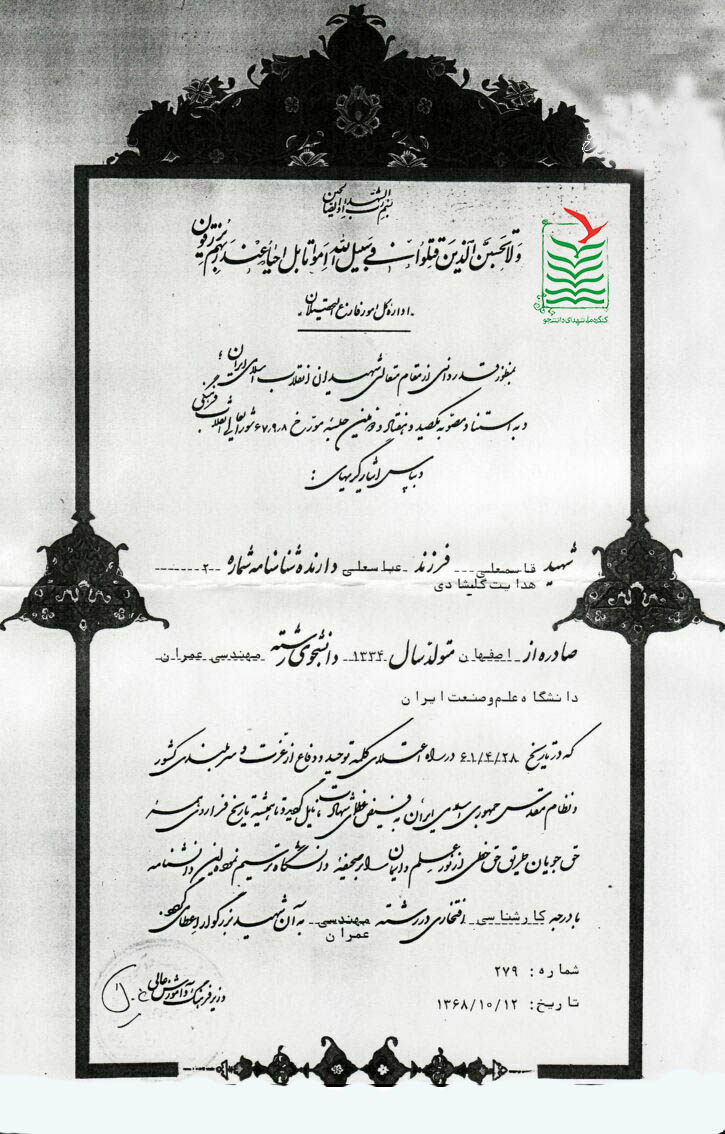 بسم رب الشهداء و الصالحین
و لا تحسبن الذین قتلوا فی سبیل الله امواتا بل احیاء عند ربهم یرزقون
کنگره ملی شهدای دانشجو
اداره کل امور فارغ التحصیلان
بمنظور قدردانی از مقام متعالی شهیدان انقلاب اسلامی ایران؛
و به استناد مصوبه یکصد و هفتاد و دومین جلسه مورخ ۶۷/۹/۸ شورایعالی انقلاب فرهنگی
و بپاس ایثارگریهای:
شهید قاسمعلی فرزند عباسعلی دارنده شناسنامه شماره ۲
هدایت کلیشادی
صادره از اصفهان متولد سال ۱۳۳۴ دانشجوی رشته مهندسی عمران
دانشگاه علم وصنعت ایران
که در تاریخ ۶۱/۴/۲۸ در راه اعتلای کلمه توحید و دفاع از عزت و سربلندی کشور
و نظام مقدس جمهوری اسلامی ایران به فیض عظمای شهادت نایل گردید و تا همیشه تاریخ فرا روی همه
حق جویان طریق حق خطی از نور علم و ایمان را بر صحیفه دانشگاه ترسیم نمود این دانشنامه
با درجه کارشناسی افتخاری در رشته مهندسی به آن شهید بزرگوار اعطا می گردد.
عمران
شماره: ۲۷۹
تاریخ: ۱۳۶۸/۱۰/۱۲
وزیر فرهنگ و آموزش عالی